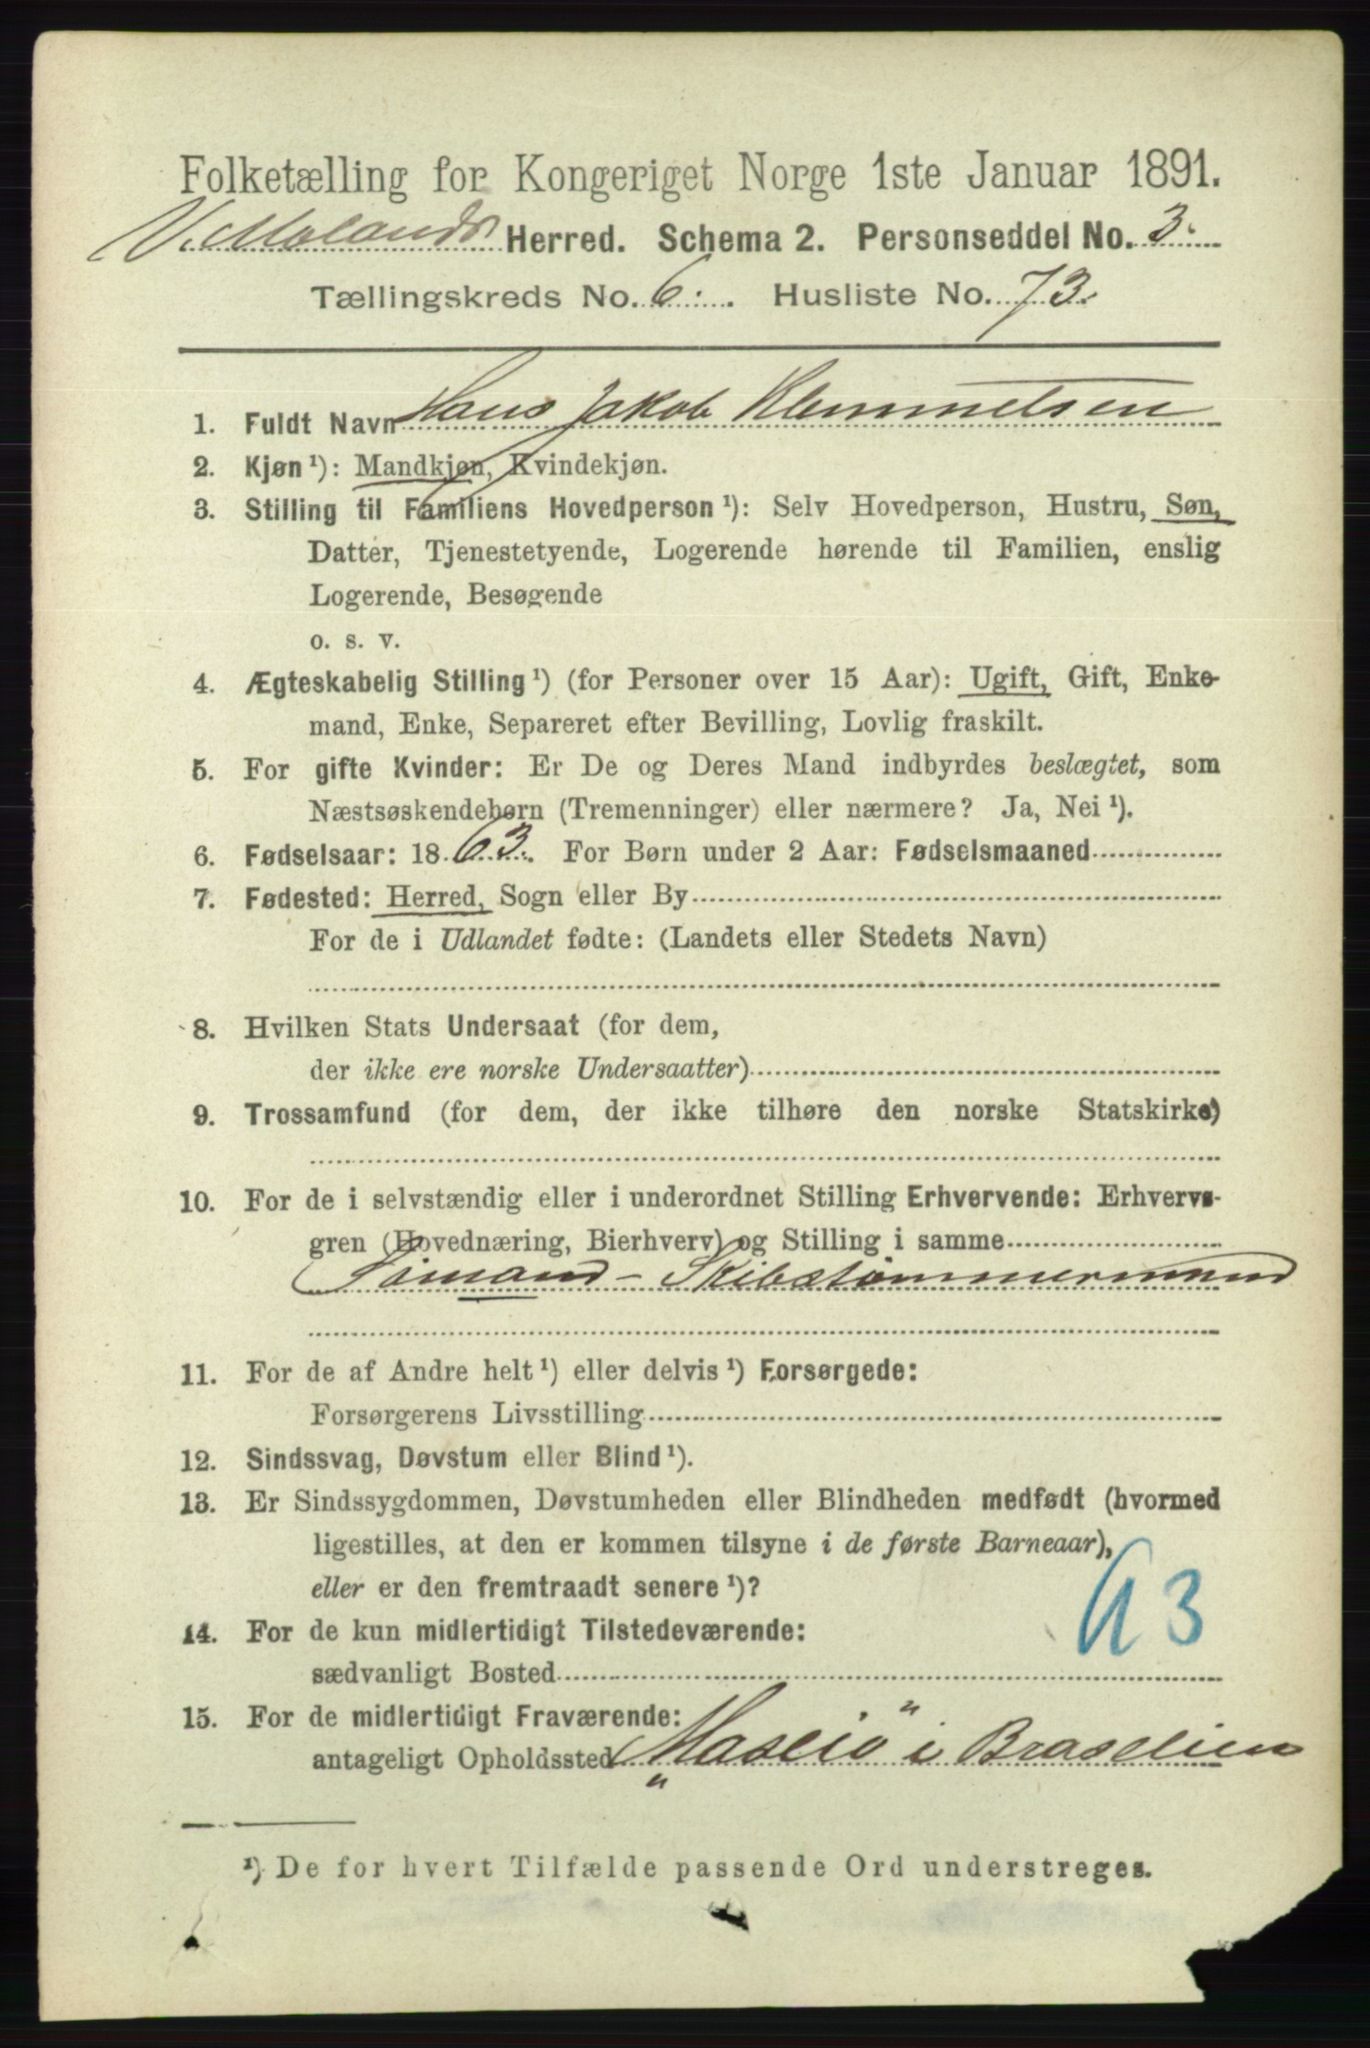 Folketælling for Kongeriget Norge 1ste Januar 1891.
V. Molands Herred. Schema 2. Personseddel No. 3.
Tællingskreds No. 6. Husliste No. 73.
1. Fuldt Navn Hans Jakob Klemmetsen
2. Kjøn ¹): Mandkjøn, Kvindekjøn.
3. Stilling til Familiens Hovedperson ¹): Selv Hovedperson, Hustru, Søn,
Datter, Tjenestetyende, Logerende hørende til Familien, enslig
Logerende, Besøgende
o. s. v.
4. Ægteskabelig Stilling ¹) (for Personer over 15 Aar): Ugift, Gift, Enke-
mand, Enke, Separeret efter Bevilling, Lovlig fraskilt.
5. For gifte Kvinder: Er De og Deres Mand indbyrdes beslægtet, som
Næstsøskendebørn (Tremenninger) eller nærmere? Ja, Nei ¹).
6. Fødselsaar: 1863. For Børn under 2 Aar: Fødselsmaaned
7. Fødested: Herred, Sogn eller By
For de i Udlandet fødte: (Landets eller Stedets Navn)
8. Hvilken Stats Undersaat (for dem,
der ikke ere norske Undersaatter)
9. Trossamfund (for dem, der ikke tilhøre den norske Statskirke)
10. For de i selvstændig eller i underordnet Stilling Erhvervende: Erhvervs-
gren (Hovednæring, Bierhverv) og Stilling i samme
Sømand - Skibstømmermand
11. For de af Andre helt ¹) eller delvis ¹) Forsørgede:
Forsørgerens Livsstilling
12. Sindssvag, Døvstum eller Blind ¹).
13. Er Sindssygdommen, Døvstumheden eller Blindheden medfødt (hvormed
ligestilles, at den er kommen tilsyne i de første Barneaar),
eller er den fremtraadt senere ¹)?
14. For de kun midlertidigt Tilstedeværende:
sædvanligt Bosted
15. For de midlertidigt Fraværende:
antageligt Opholdssted „Maseio" i Braselien
¹) De for hvert Tilfælde passende Ord understreges.